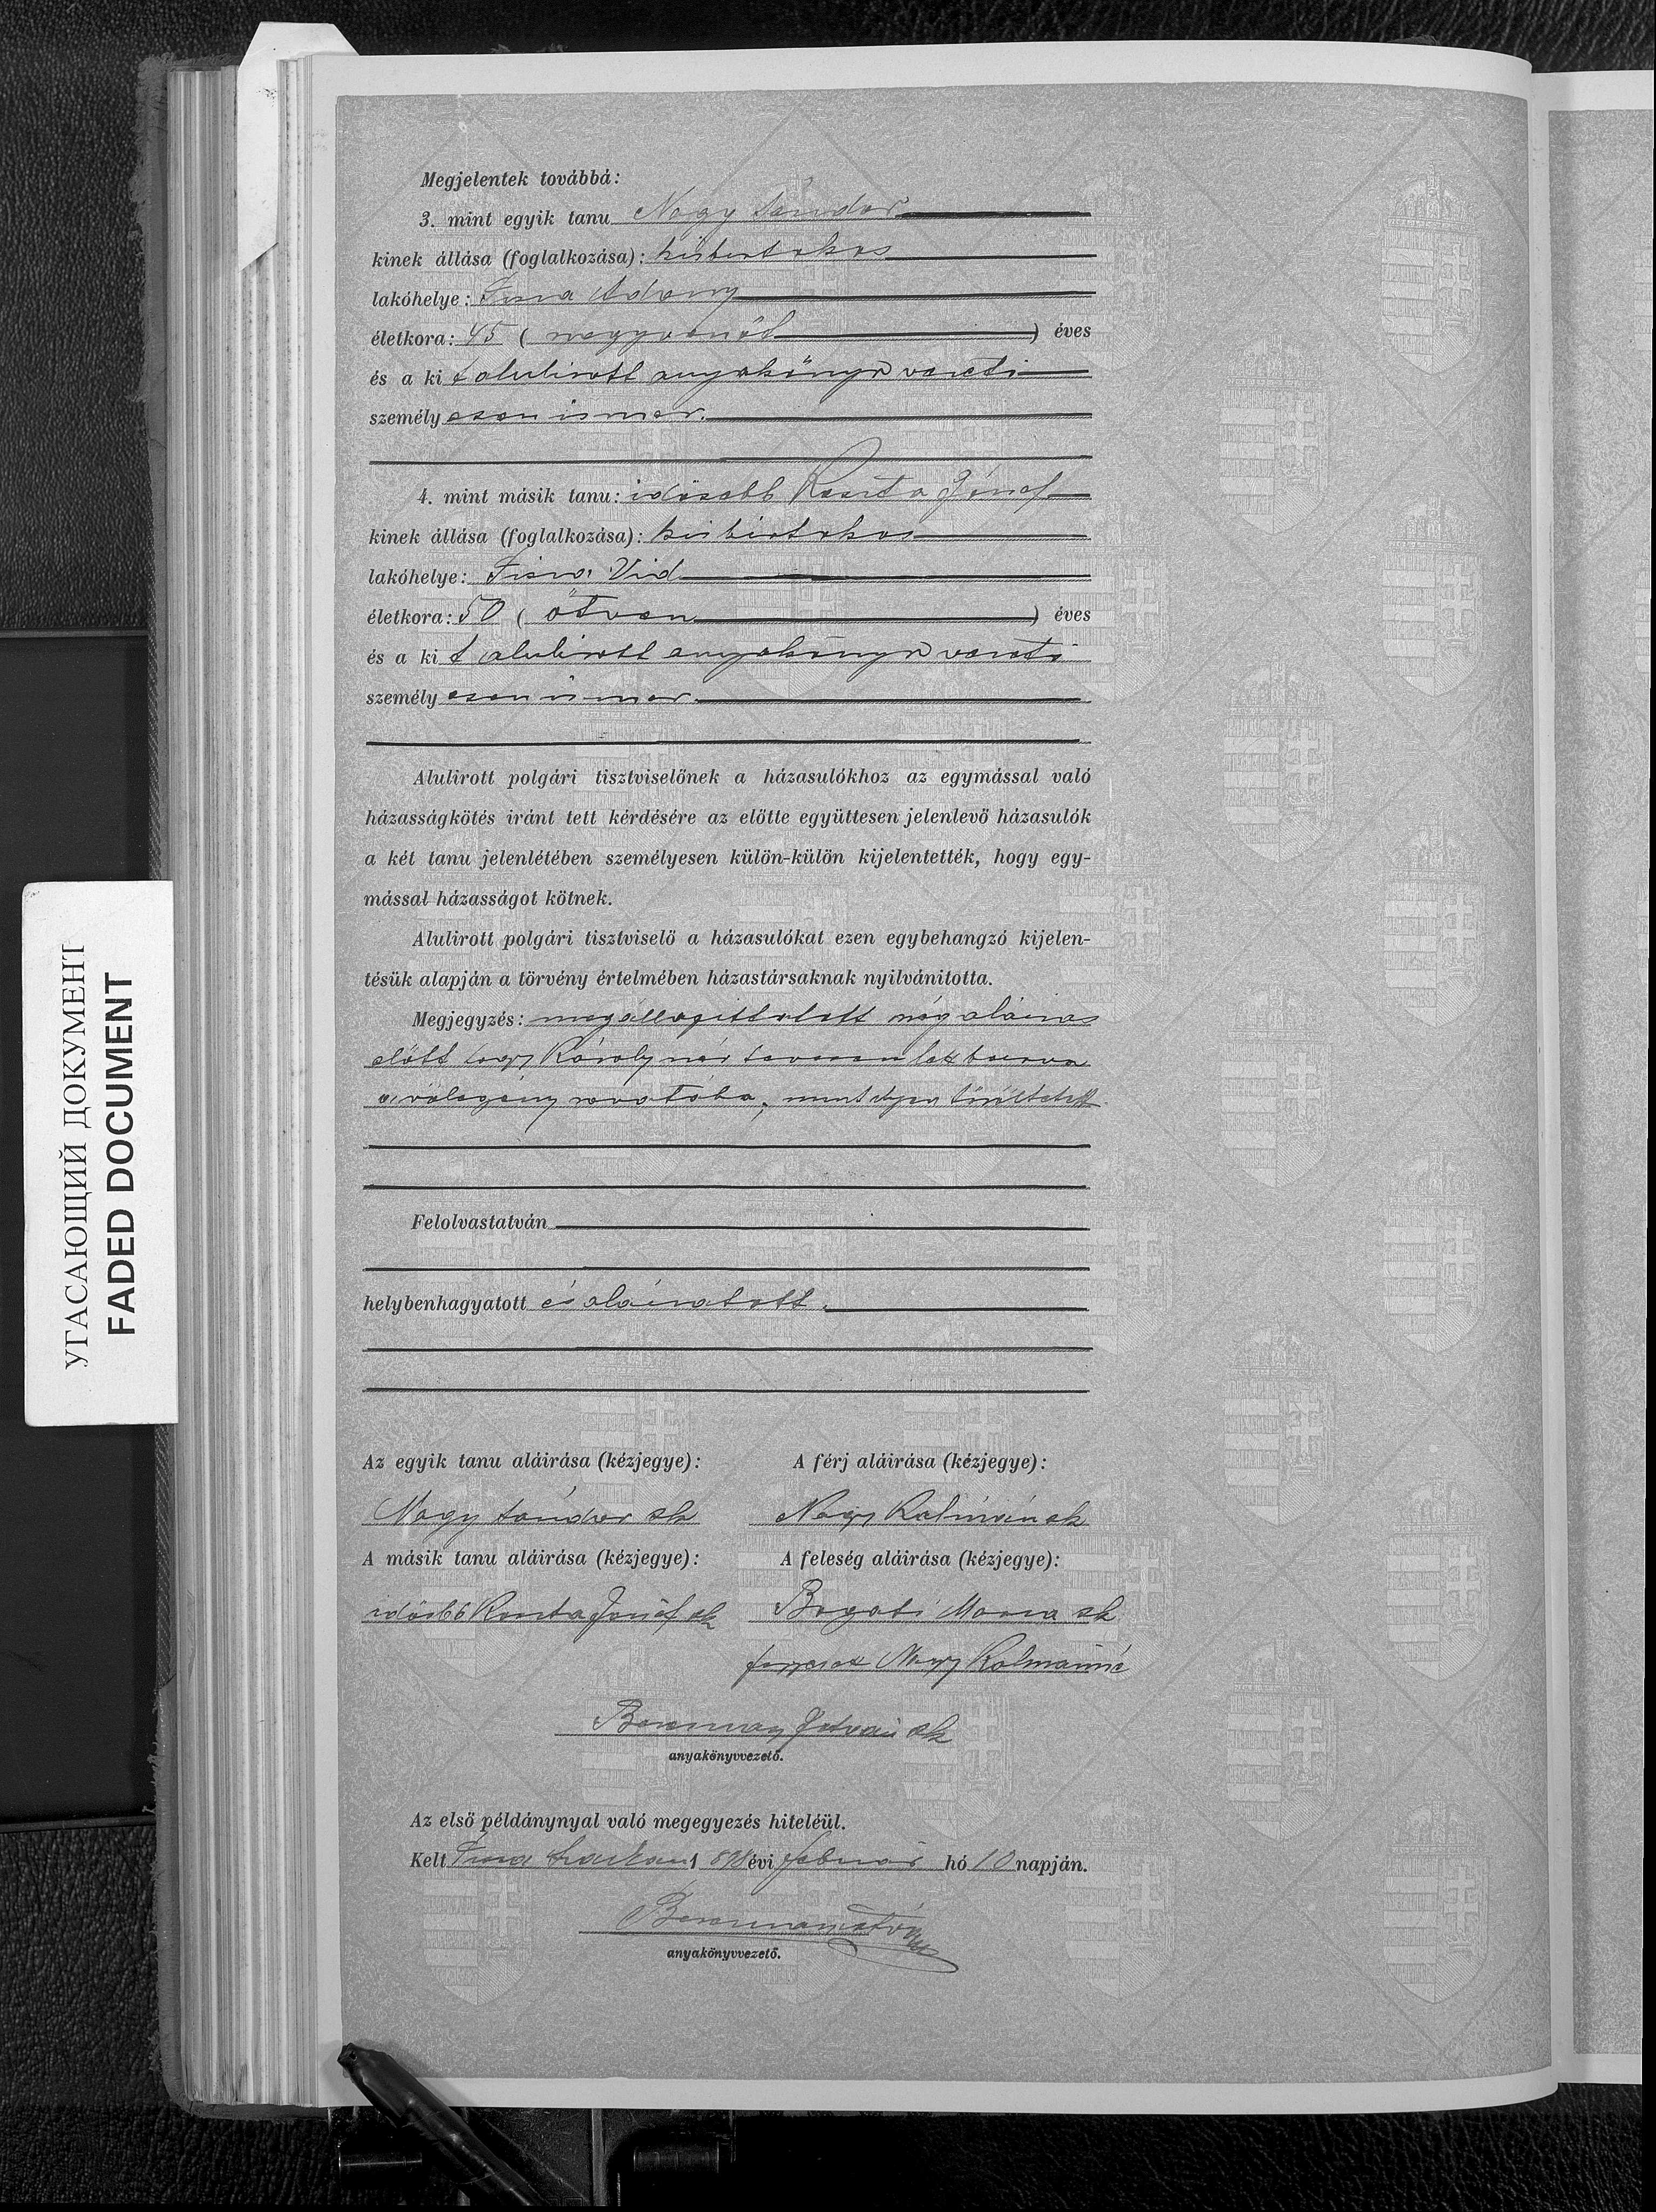 УГАСАЮЩИЙ ДОКУМЕНТ
FADED DOCUMENT
Megjelentek továbbá:
3. mint egyik tanu Nagy Sándor
kinek állása (foglalkozása): kisbirtokos
lakóhelye: Tisza Adony
életkora: 45 ( negyvenöt ) éves
és a ki t alulirott anyakönyvvezető
személyesen ismer.
4. mint másik tanu: idősebb Kosta József
kinek állása (foglalkozása): kisbirtokos
lakóhelye: Tisza Vid
életkora: 50 ( ötven ) éves
és a ki t alulirott anyakönyvvezető
személyesen ismer.
Alulirott polgári tisztviselőnek a házasulókhoz az egymással való
házasságkötés iránt tett kérdésére az előtte együttesen jelenlevő házasulók
a két tanu jelenlétében személyesen külön-külön kijelentették, hogy egy-
mással házasságot kötnek.
Alulirott polgári tisztviselő a házasulókat ezen egybehangzó kijelen-
tésük alapján a törvény értelmében házastársaknak nyilvánitotta.
Megjegyzés: megállapittatott még aláiras
előtt hogy Károly név tevesen lett beirva
a völegény rovatába, mint ilyen töröltetett
Felolvastatván
helybenhagyatott és aláiratott.
Az egyik tanu aláirása (kézjegye): A férj aláirása (kézjegye):
Nagy Sándor sk Nagy Kálmán sk
A másik tanu aláirása (kézjegye): A feleség aláirása (kézjegye):
idősbb Kosta József sk Bagati Maria sk
Nagy Kalmánné
István sk
anyakönyvvezető.
Az első példánynyal való megegyezés hiteléül.
Kelt Tisza 1898 évi februar hó 10 napján.
anyakönyvvezető.